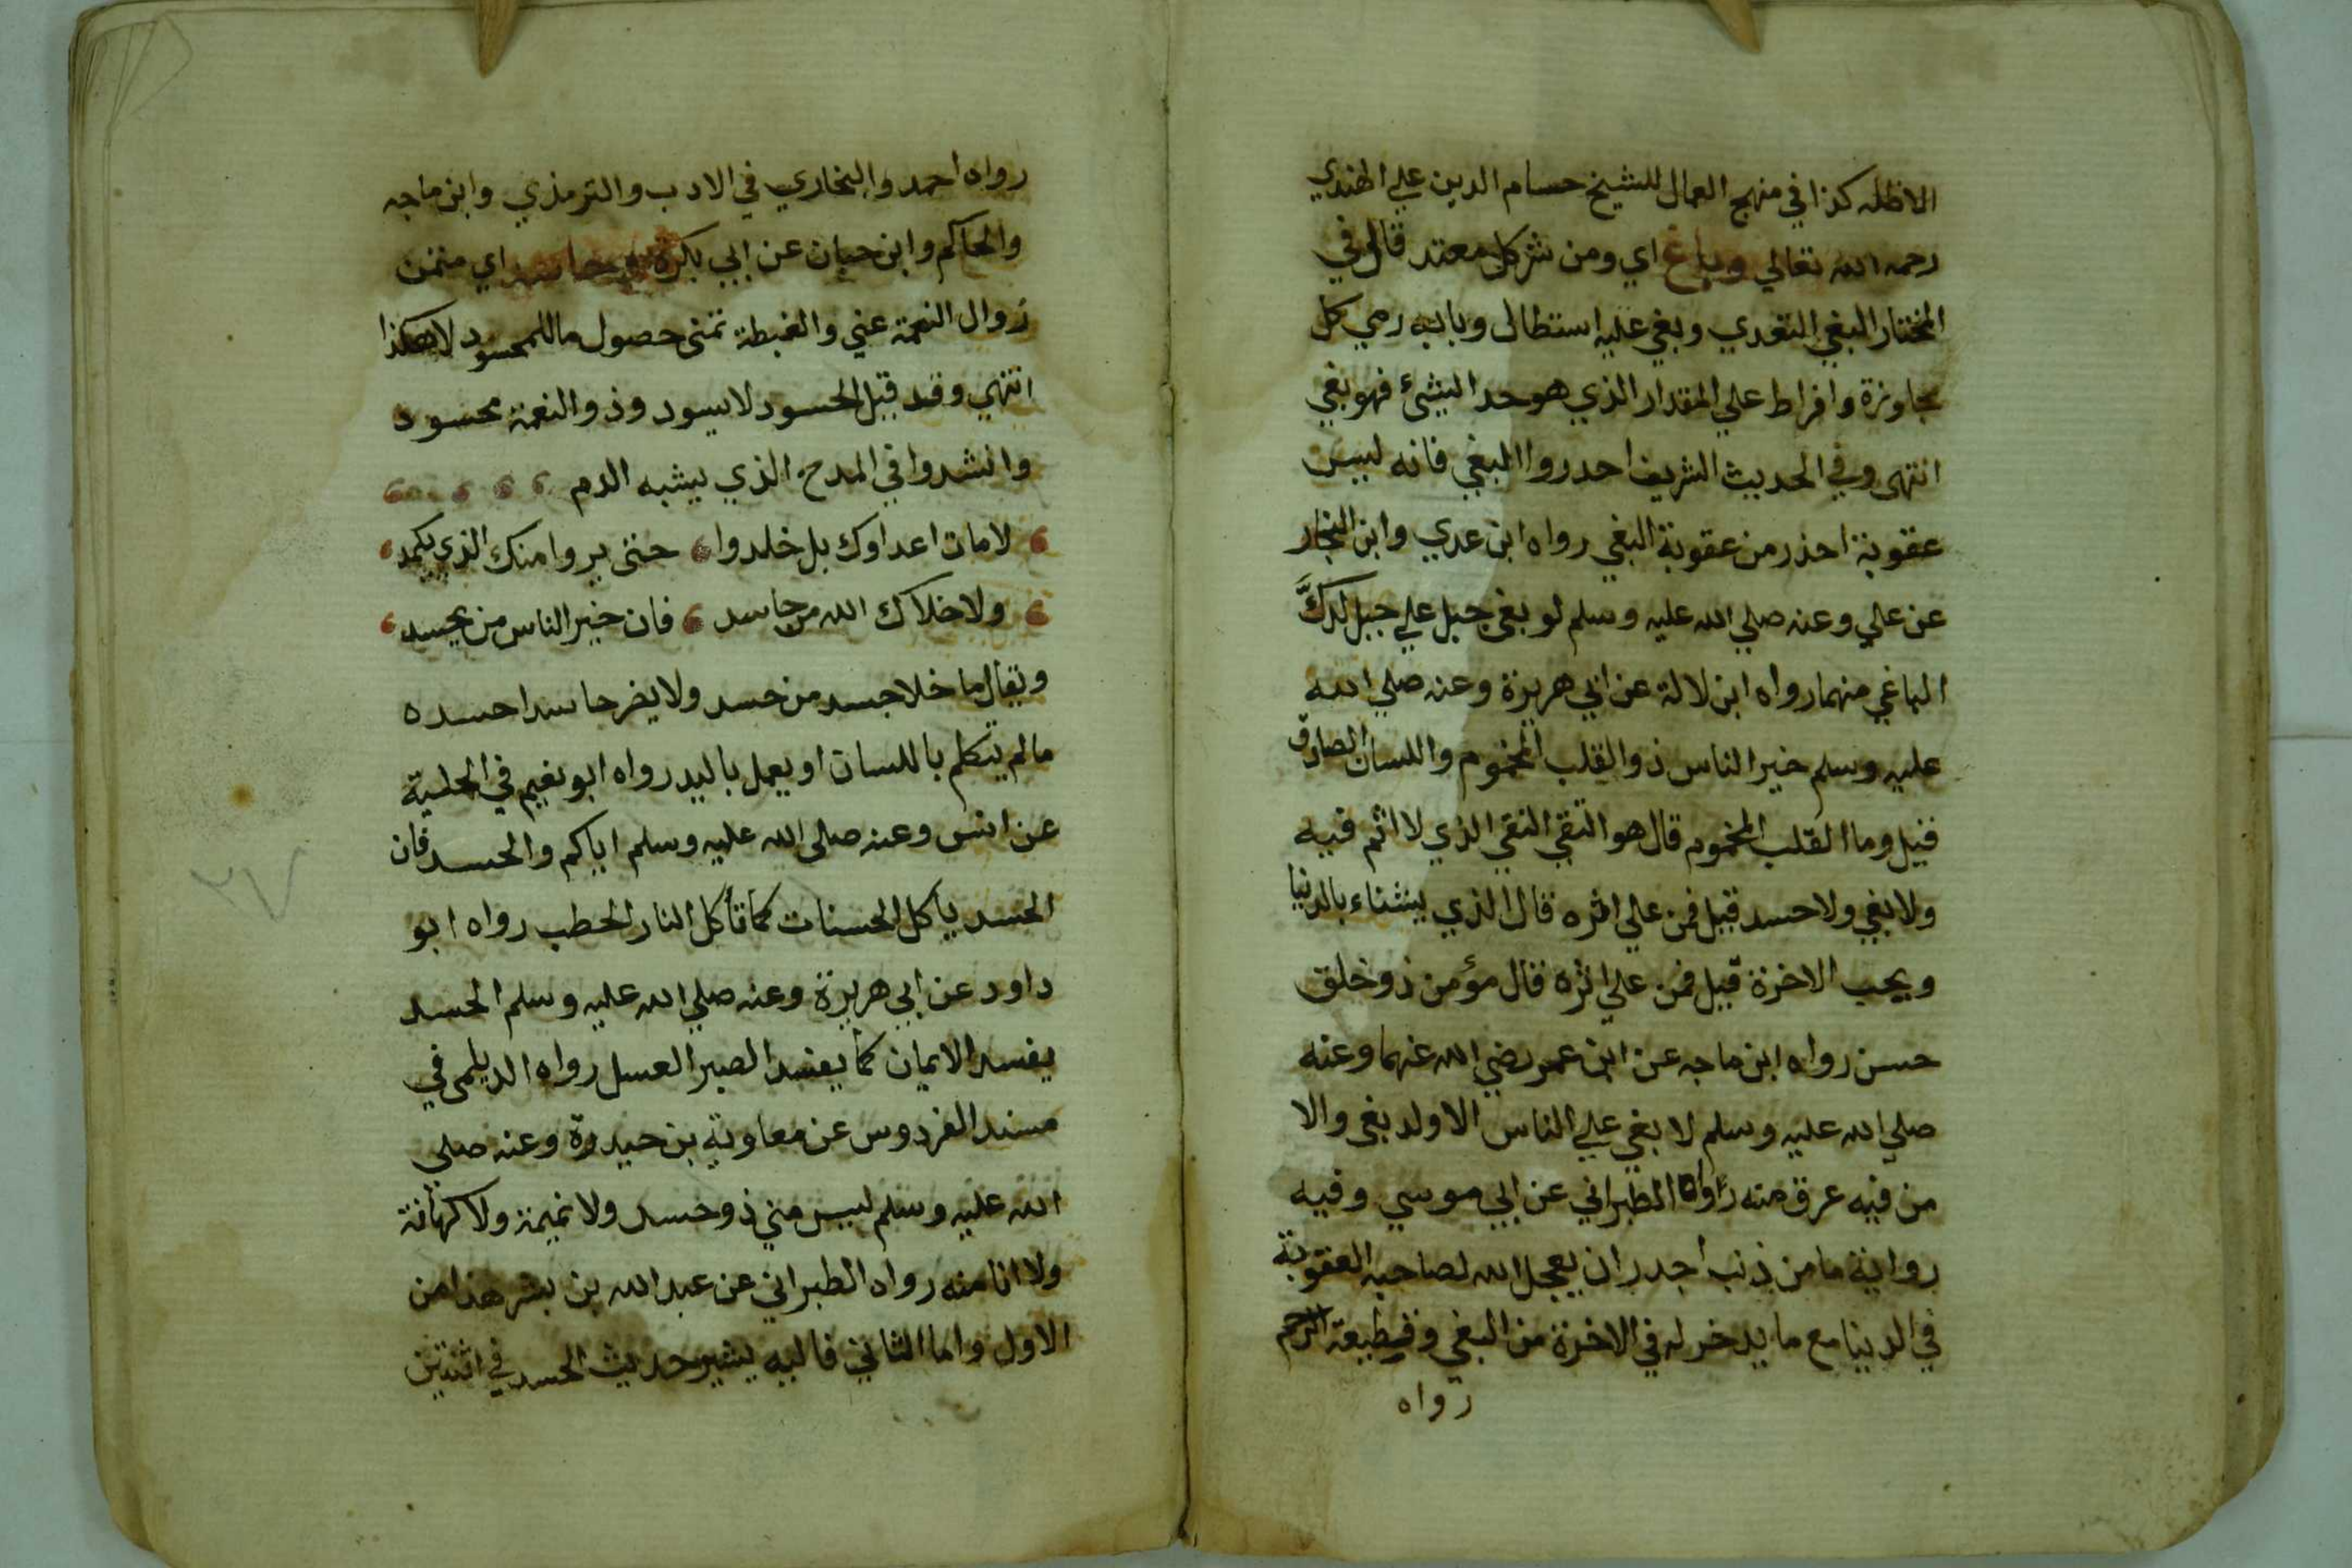 الاظله كذا في منهج العمال للشيخ حسام الدين علي الهندي
رحمه الله تعالي وباغ اي ومن شر كل معتد قال في
المختار البغي التعدي وبغي عليه استطال وبابه رمي كل
مجاوزة وافراط علي المقدار الذي هو حد الشئ فهو بغي
انتهى وفي الحديث الشريف احدروا البغي فانه ليس
عقوبة احذر من عقوبة البغي رواه ابن عدي وابن النجار
عن علي وعنه صلي الله عليه وسلم لو بغى جبل علي جبل لدك
الباغي منهما رواه ابن لالة عن ابي هريرة وعنه صلي الله
عليه وسلم خير الناس ذو القلب المخموم واللسان الصادق
قيل وما القلب المخموم قال هو التقي النقي الذي لا اثم فيه
ولا بغي ولا حسد قيل فمن علي اثره قال الذي يشناء بالدنيا
ويحب الاخرة قيل فمن علي اثره قال مؤمن ذو خلق
حسن رواه ابن ماجه عن ابن عمر رضي الله عنهما وعنه
صلي الله عليه وسلم لا بغي علي الناس الا ولد بغي والا
من فيه عرق منه رواه الطبراني عن ابي موسي وفيه
رواية ما من ذنب اجدر ان يعجل الله لصاحبه العقوبة
في الدينا مع ما يدخر له في الاخرة من البغي وقطيعة الرحم
رواه
رواه احمد والبخاري في الادب والترمذي وابن ماجه
والحاكم وابن حبان عن ابي بكرة وحاسد اي متمن
زوال النعمة عني والغبطة تمنى حصول ما للمحسود لا هكذا
انتهي وقد قيل الحسود لا يسود وذو النعمة محسود
وانشدوا في المدح الذي يشبه الذم
لا مات اعداوك بل خلدوا حتى يروا منك الذي يكمد
ولا خلاك الله من حاسد فان خير الناس من يحسد
ويقال ما خلا جسد من حسد ولا يضر حاسدا حسده
ما لم يتكلم باللسان او يعمل باليد رواه ابو نعيم في الحلية
عن انس وعنه صلى الله عليه وسلم اياكم والحسد فان
الحسد يأكل الحسنات كما تأكل النار الحطب رواه ابو
داود عن ابي هريرة وعنه صلي الله عليه وسلم الحسد
يفسد الايمان كما يفسد الصبر العسل رواه الديلمى في
مسند الفردوس عن معاوية بن حيدرة وعنه صلي
الله عليه وسلم ليس مني ذو حسد ولا نميمة ولا كهانة
ولا انا منه رواه الطبراني عن عبد الله بن بشر هذا من
الاول واما الثاني فاليه يشير حديث الحسد في اثنتين